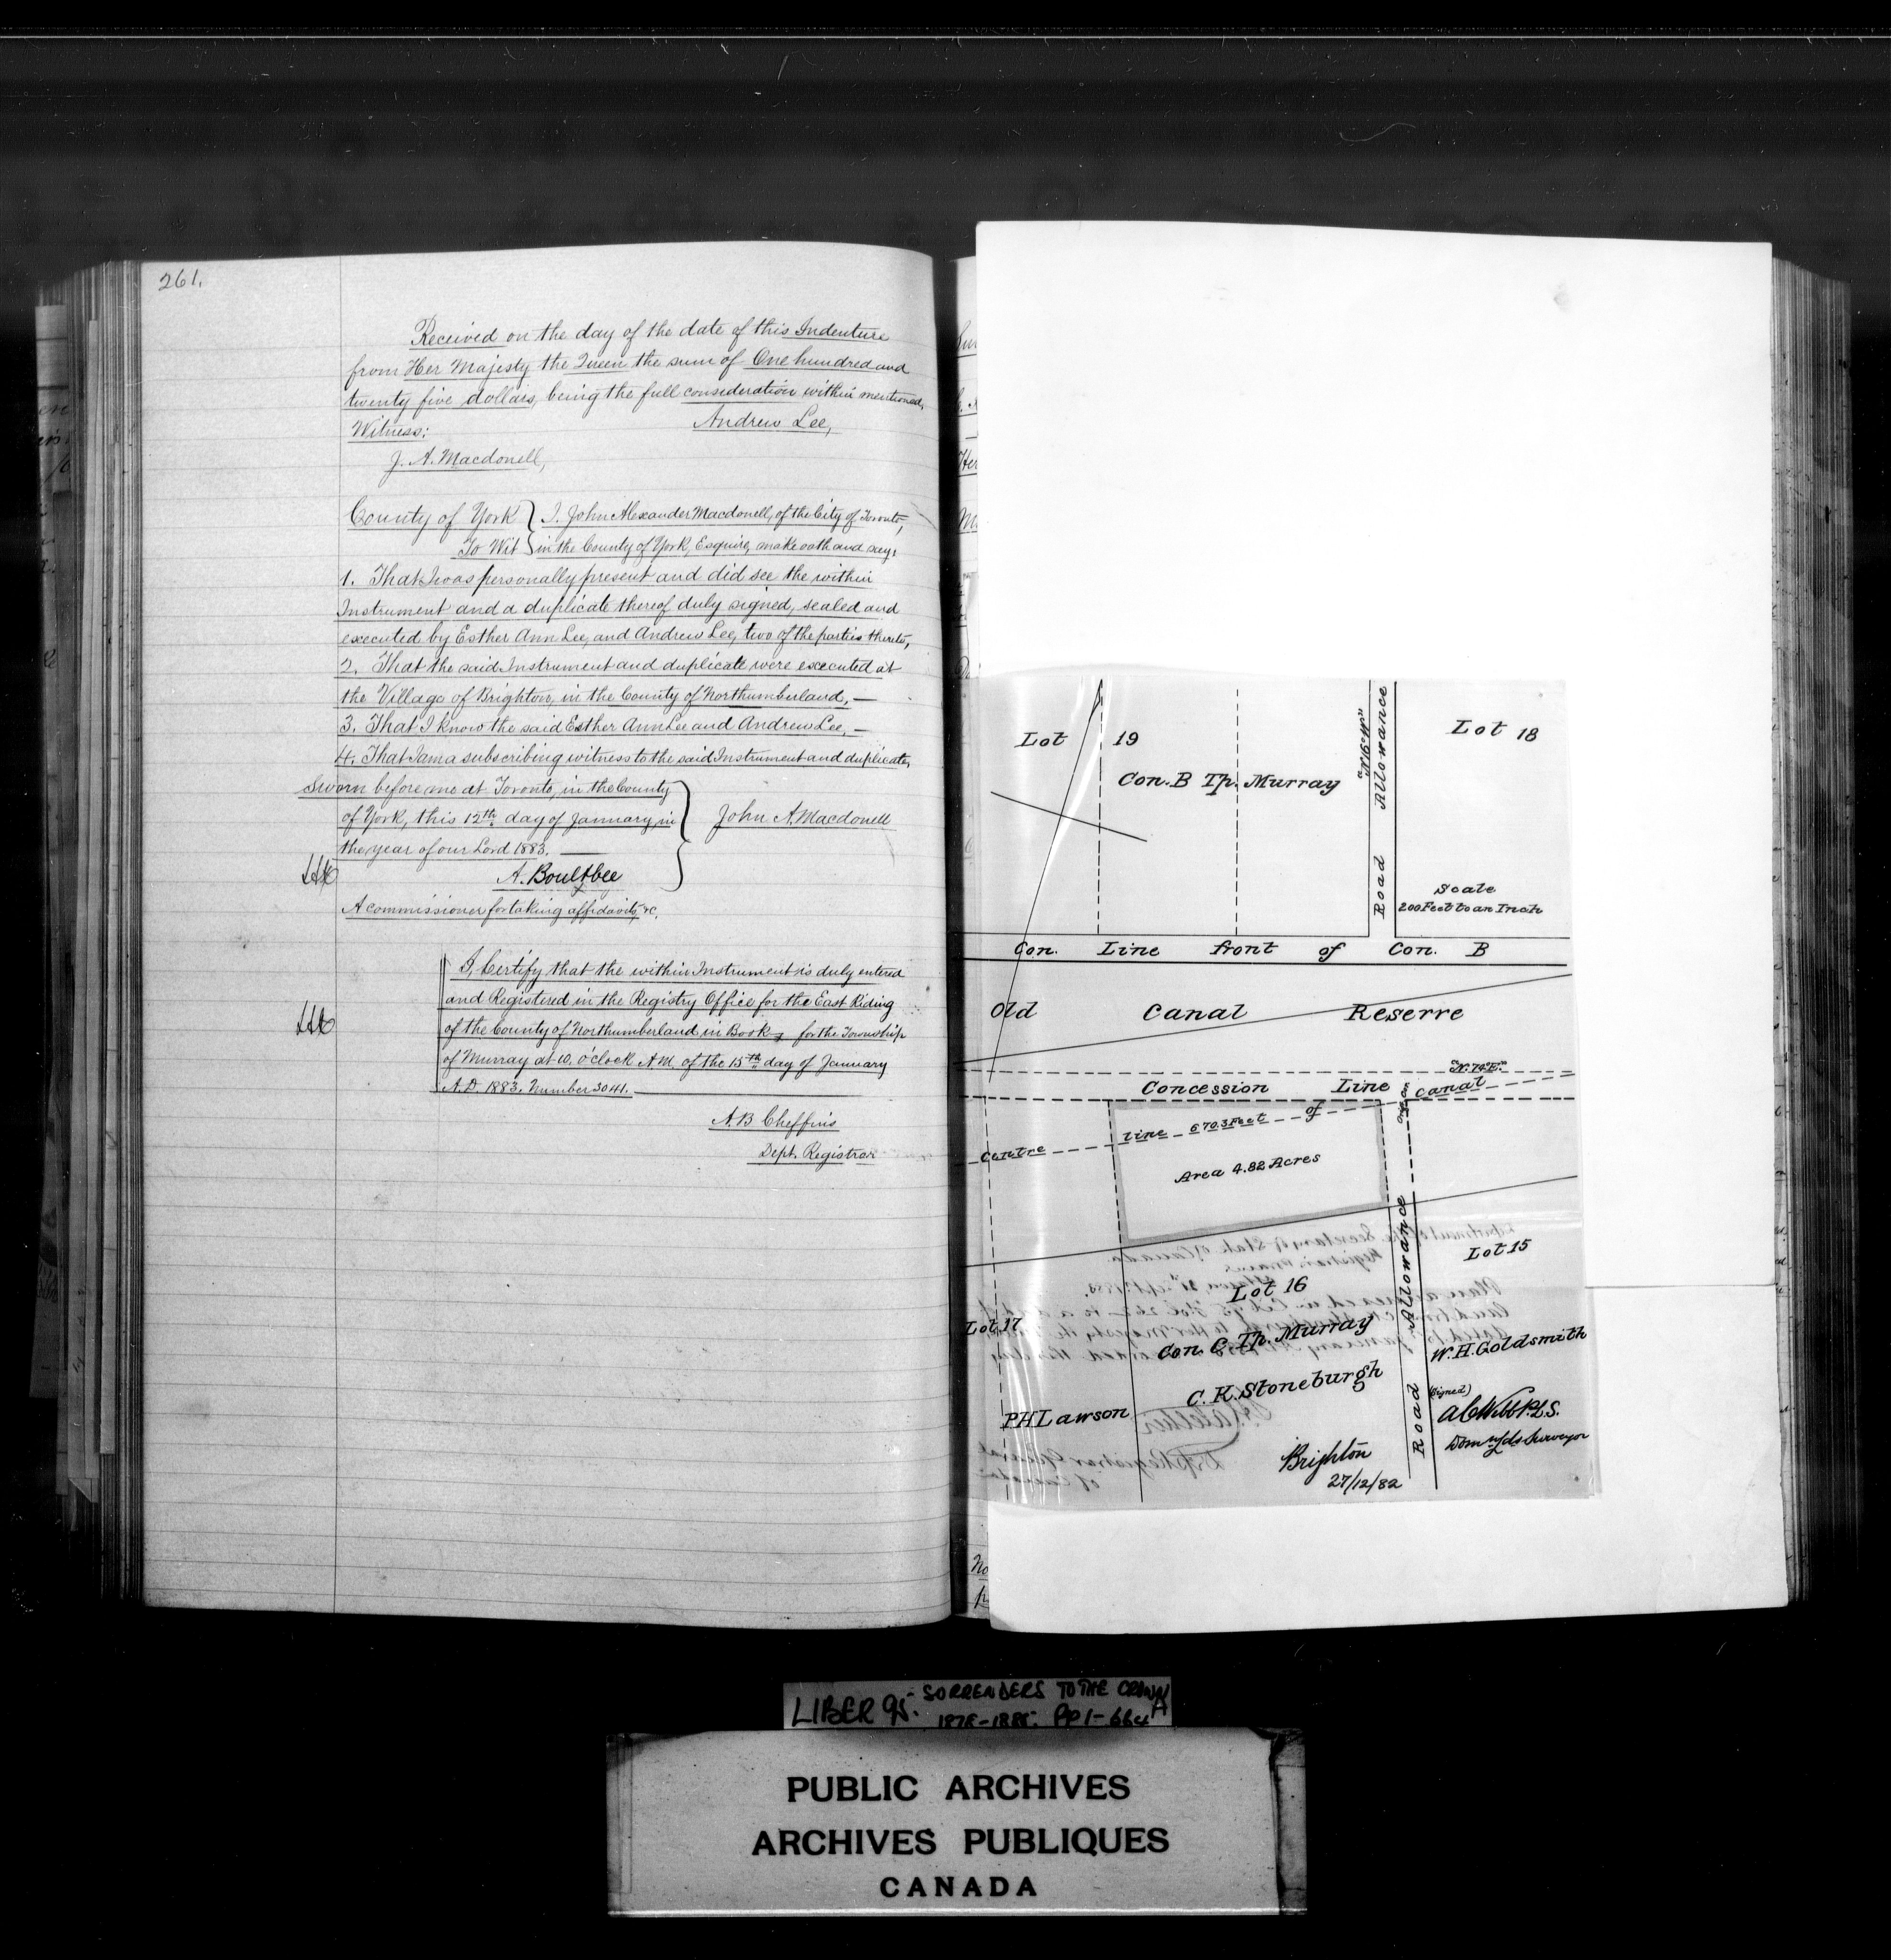 261.
Received on the day of the date of this Indenture
from Her Majesty the Queen the sum of One hundred and
twenty five dollars, being the full consideration within mentioned,
Witness: Andrew Lee,
J. A. Macdonell,
County of York } I, John Alexander Macdonell, of the City of Toronto,
To Wit } in the County of York, Esquire, make oath and say:
1. That I was personally present and did see the within
Instrument and a duplicate thereof duly signed, sealed and
executed by Esther Ann Lee, and Andrew Lee, two of the parties thereto,
2. That the said Instrument and duplicate were executed at
the Village of Brighton, in the County of Northumberland, —
3. That I know the said Esther Ann Lee and Andrew Lee, —
4. That I am a subscribing witness to the said Instrument and duplicate,
Sworn before me at Toronto, in the County
of York, this 12th day of January, in } John A. Macdonell
the year of our Lord 1883. —
A. Boultbee
A commissioner for taking affidavits, &c.
I, Certify that the within Instrument is duly entered
and Registered in the Registry Office for the East Riding
of the County of Northumberland in Book for the Township
of Murray at 10. o'clock A.M. of the 15th day of January
A.D. 1883. Number 3041.
A. B Cheffins
Dept. Registrar
Lot 19
Con. B Tp. Murray
"N.16°W."
Road Allowance
Lot 18
Scale
200 Feet to an Inch
Con. Line front of Con. B
Old Canal Reserre
"N.74°E."
Concession Line
Centre line 670.3 Feet of Canal
Area 4.82 Acres
Road Allowance
Lot 15
Lot 16
Lot 17
Con. C Tp. Murray
W. H. Goldsmith
C. K. Stoneburgh
PH Lawson
(Signed)
Brighton
27/12/82
LIBER 95. SORRENDERS TO THE CROWN
1878-1885. PP 1-664A
PUBLIC ARCHIVES
ARCHIVES PUBLIQUES
CANADA